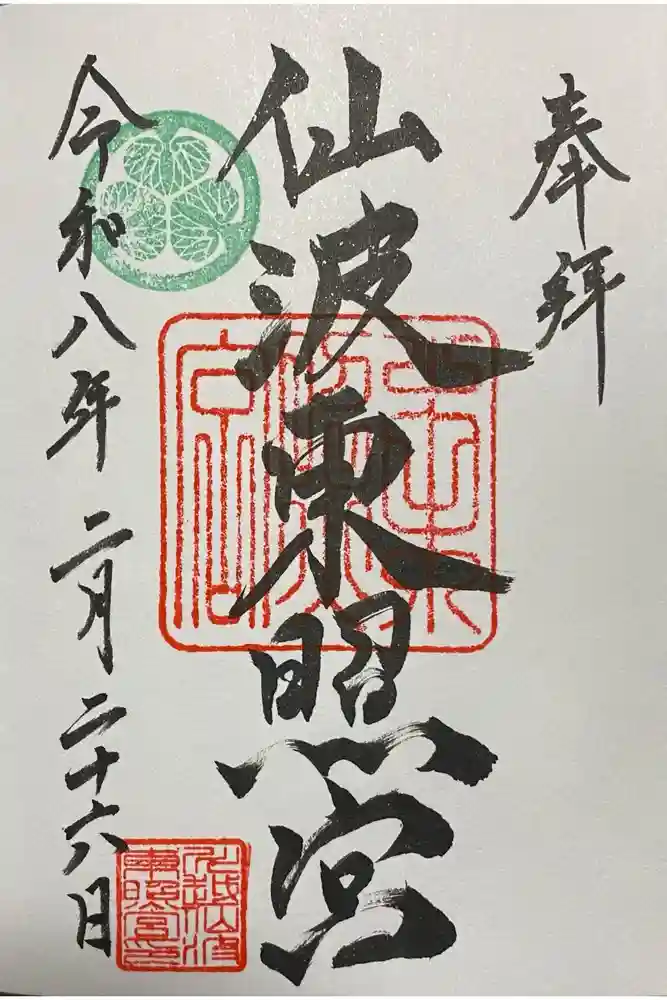 奉拝
仙波東照宮
令和八年二月二十六日